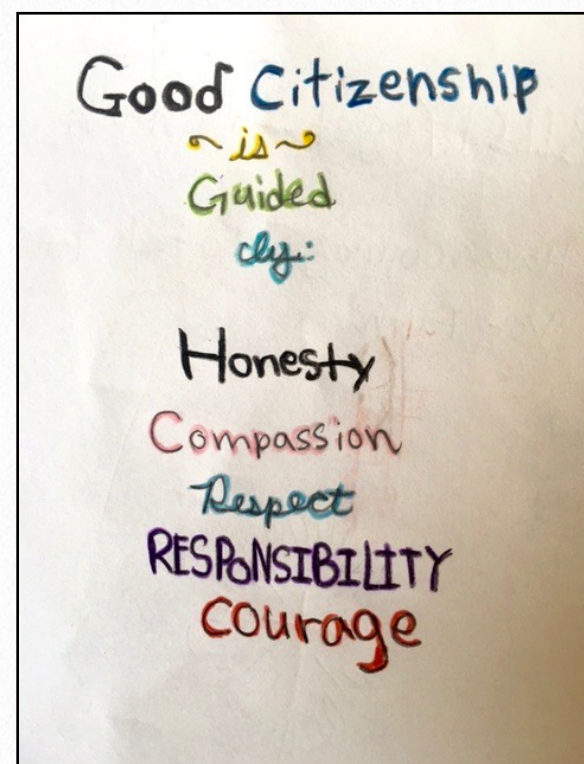 Good Citizenship
~is~
Guided
by:
Honesty
Compassion
Respect
RESPONSIBILITY
Courage